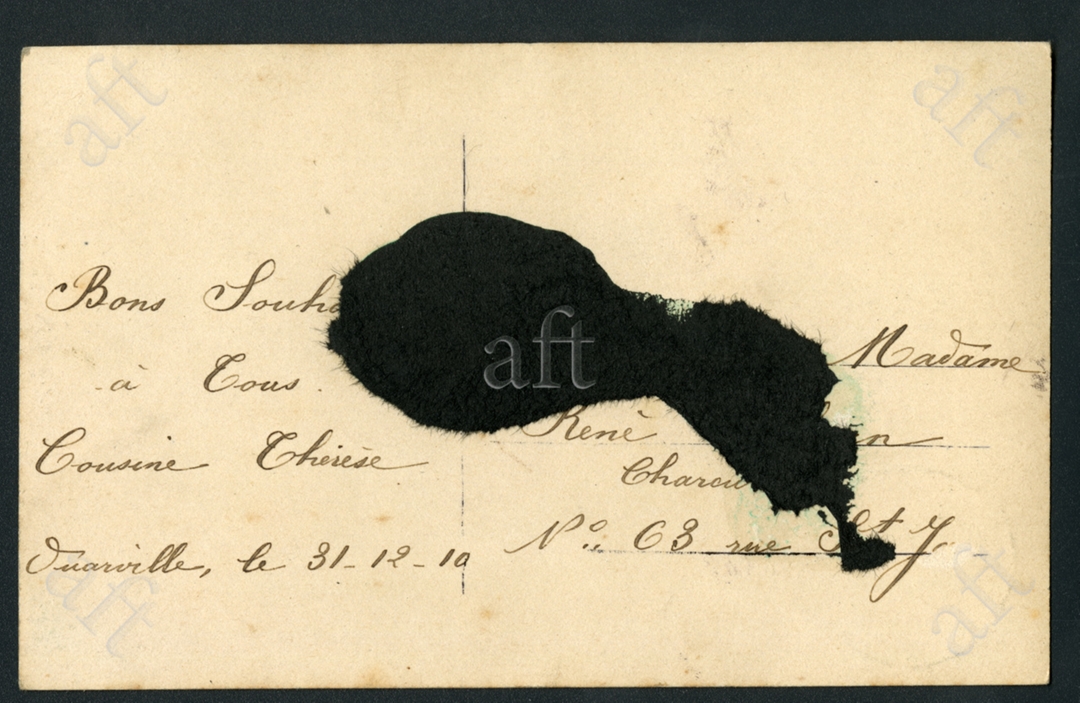 Bons Souha
à Tous.
Cousine Thérèse
Ouarville, le 31-12-10
Madame
René n
Charcu
No. 63 rue St J.
aft
aft
aft
aft
aft